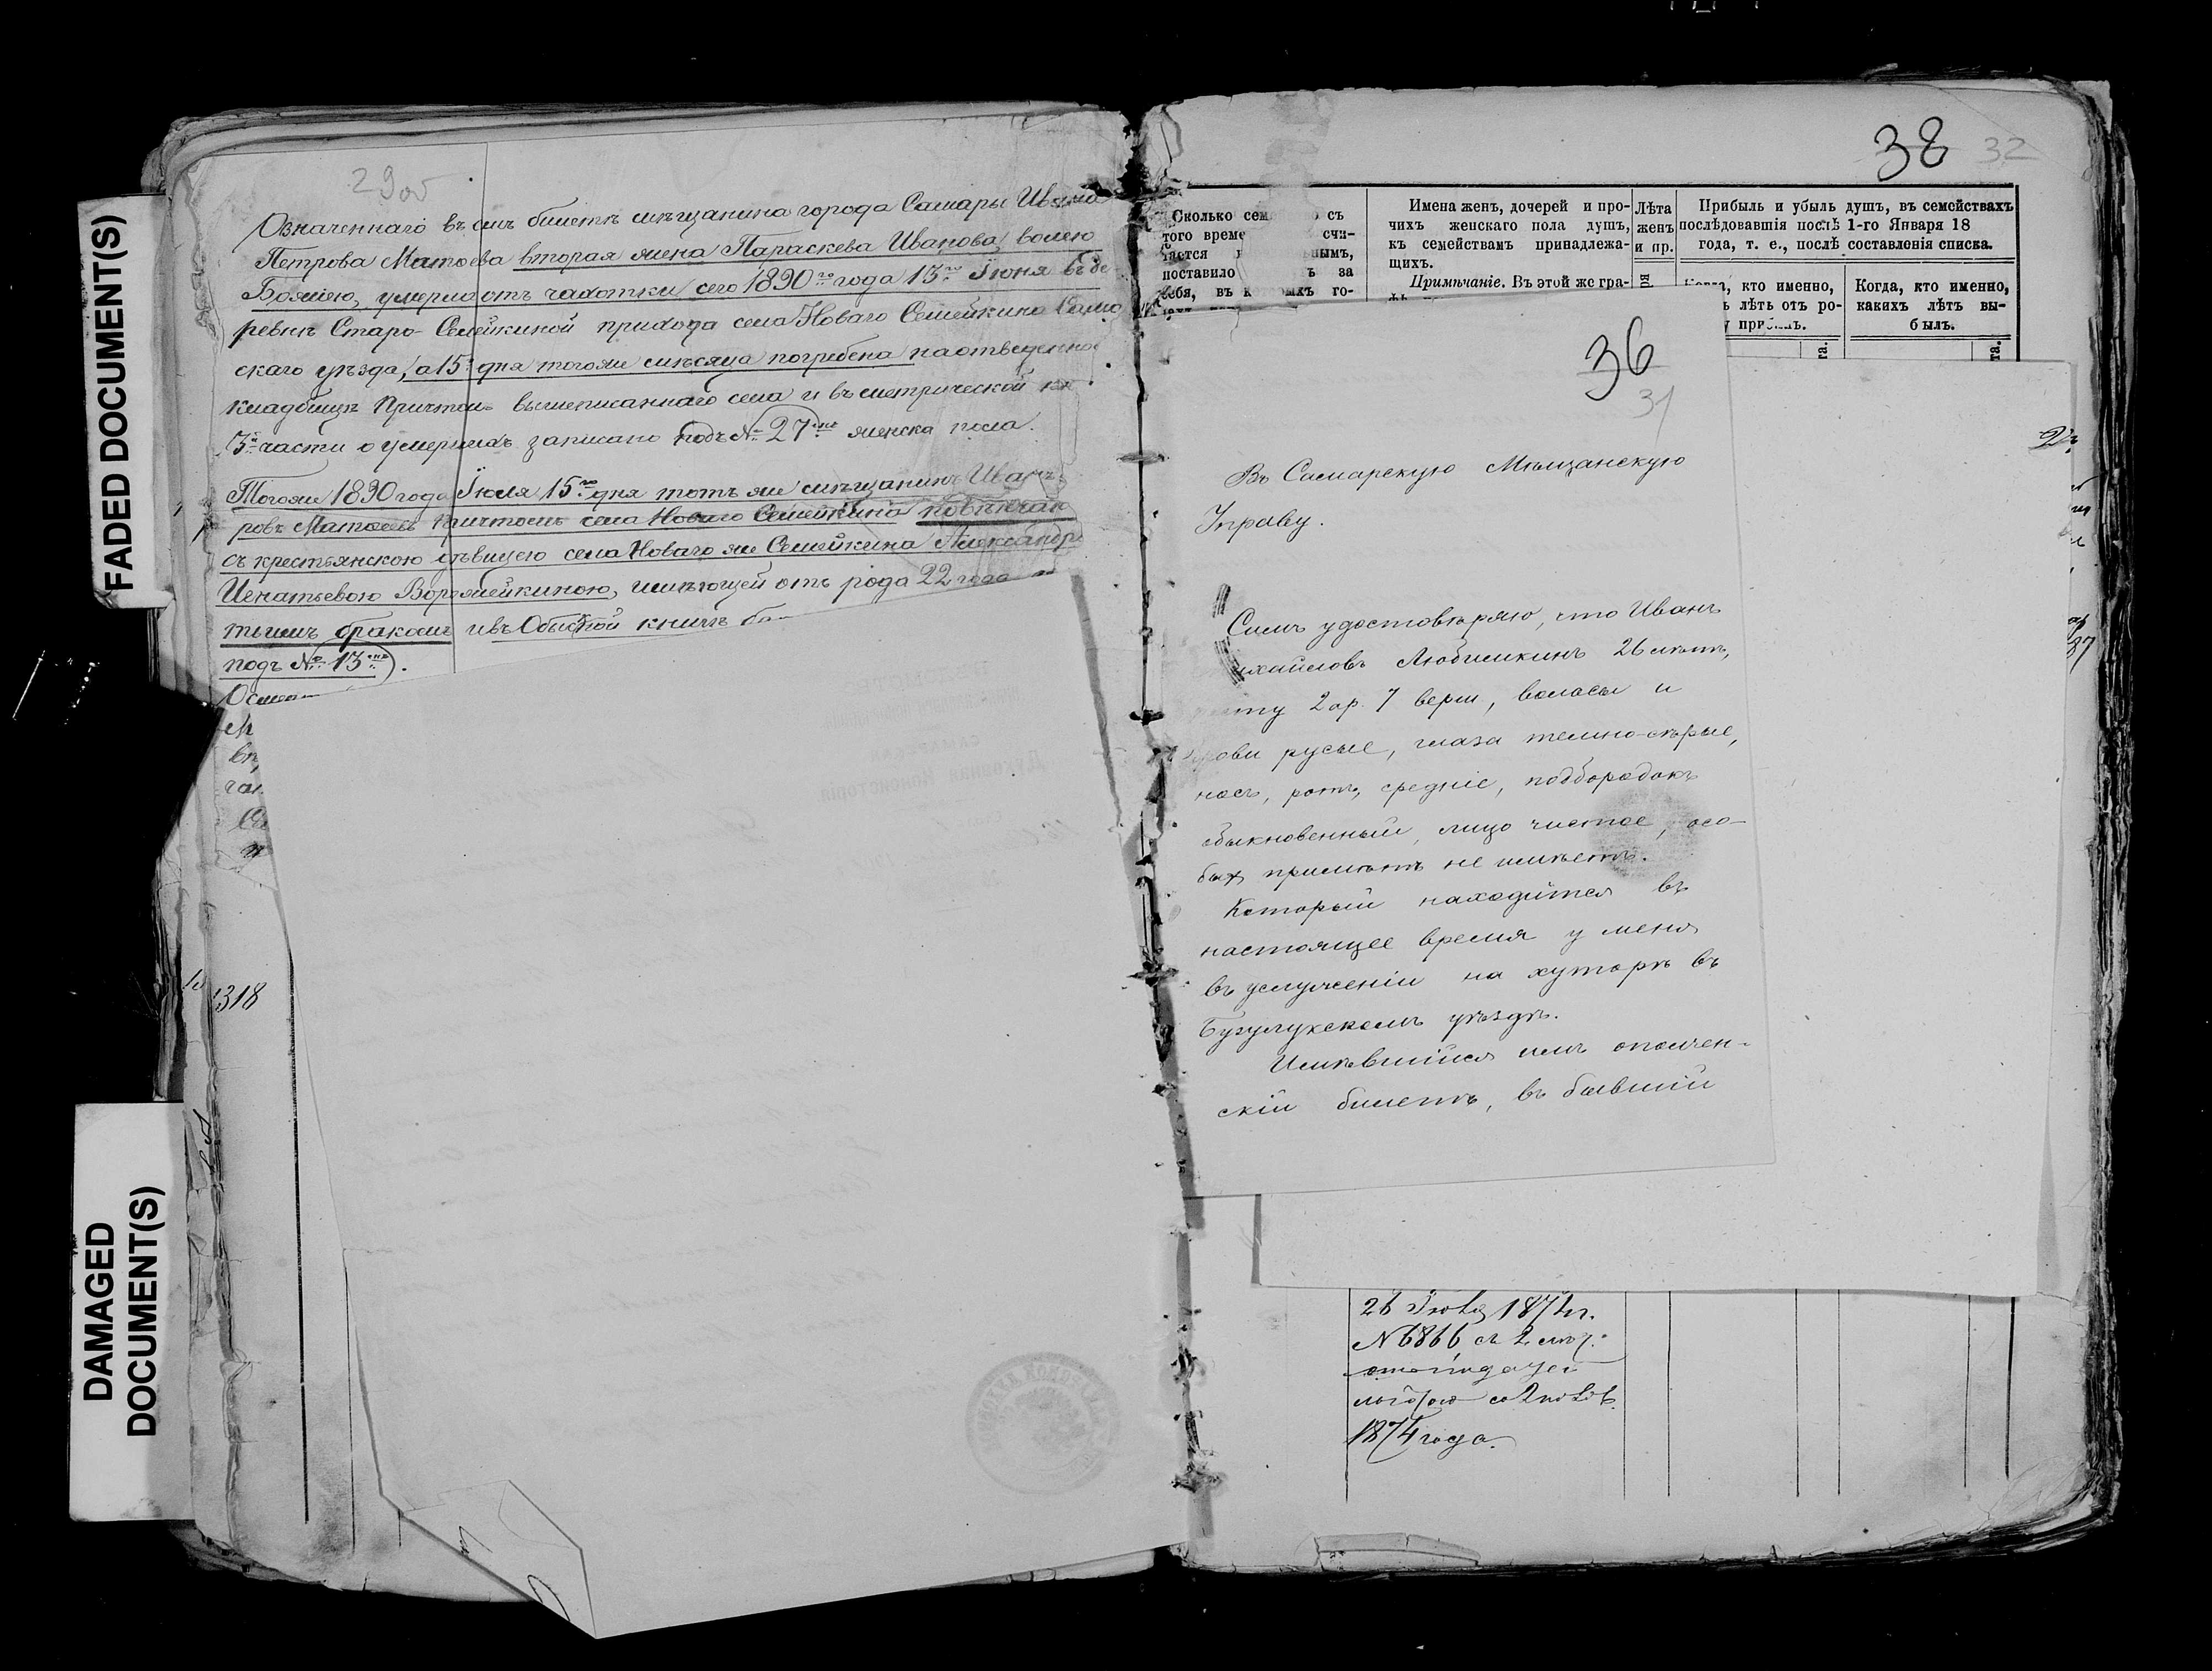 FADED DOCUMENT(S)
DAMAGED
DOCUMENT(S)
29об
Означеннаго въ семъ билетѣ мѣщанина города Самары Ивана
Петрова Матвѣева вторая жена Параскева Иванова, волею
Божіею, умерла отъ чахотки сего 1890го года 13го Іюня въ де
ревнѣ Старо-Семейкиной прихода села Новаго Семейкина Сама
скаго уѣзда, а 15 дня тогоже мѣсяца погребена на отведенно
кладбищѣ Причтомъ вышеписаннаго села и въ метрической кн
3й части о умершихъ записано подъ № 27мъ женска пола.
Тогоже 1890 года Іюля 15го дня тотъ же мѣщанинъ Иванъ
ровъ Матвѣевъ Причтомъ села Новаго Семейкина повѣнчан
съ крестьянскою дѣвицею села Новаго же Семейкина Александр
Игнатьевою Ворожейкиною, имѣющей отъ рода 22 года
тьимъ бракомъ и въ Обыскной книгѣ
подъ № 13мъ.
318
38 32
Сколько сем о съ
того време счи-
тается нымъ,
поставило ъ за
себя, въ к ыхъ го-
Имена женъ, дочерей и про-
чихъ женскаго пола душъ,
къ семействамъ принадлежа-
щихъ.
Примѣчаніе. Въ этой же гра-
Лѣта
женъ
и пр.
Прибыль и убыль душъ, въ семействахъ
послѣдовавшія послѣ 1-го Января 18
года, т. е., послѣ составленія списка.
кто именно,
лѣтъ отъ ро-
Когда, кто именно,
какихъ лѣтъ вы-
былъ.
36
31
Въ Самарскую Мѣщанскую
Управу.
Симъ удостовѣряю, что Иванъ
ихайловъ Любимкинъ 26 лѣтъ,
ту 2 ар. 7 верш, волосы и
рови русые, глаза темно-сѣрые,
носъ, ротъ, средніе, подбородокъ
обыкновенный, лицо чистое, осо-
быхъ примѣтъ не имѣетъ.
Который находится въ
настоящее время у меня
въ услуженіи на хуторѣ въ
Бузулукскомъ уѣздѣ.
Имѣвшійся имъ ополчен-
скій билетъ, въ бывшій
1874 г.
№ 6866 съ 2
1874 года.